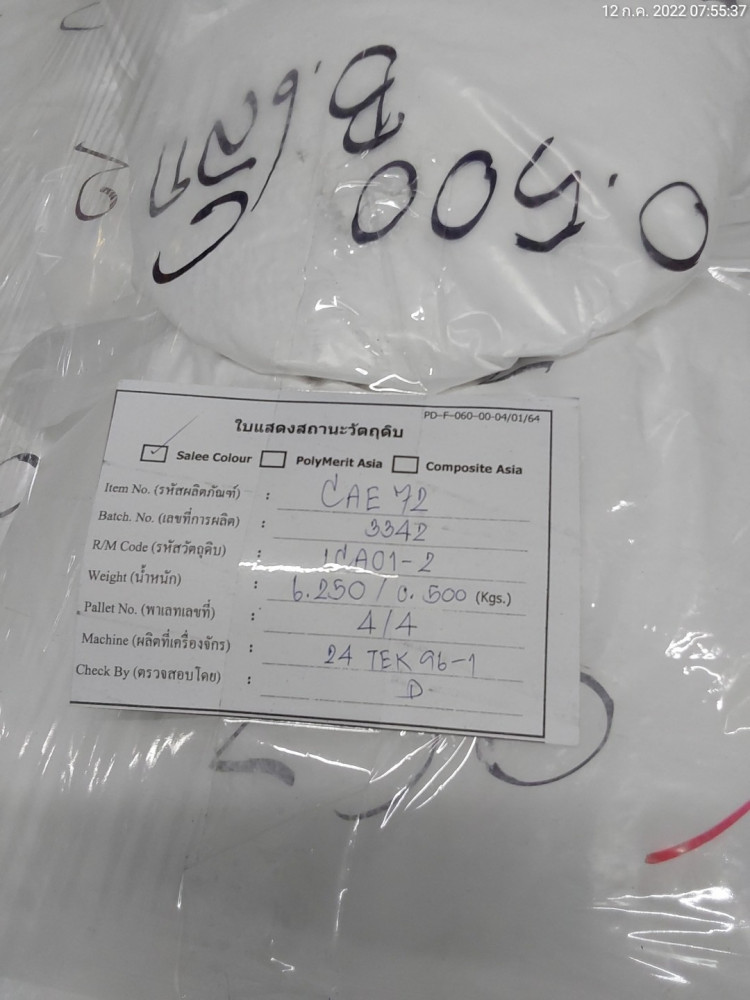 12 ก.ค. 2022 07:55:37
0.500
PD-F-060-00-04/01/64
ใบแสดงสถานะวัตถุดิบ
Salee Colour PolyMerit Asia Composite Asia
Item No. (รหัสผลิตภัณฑ์) : CAE 72
Batch. No. (เลขที่การผลิต) : 3342
R/M Code (รหัสวัตถุดิบ) : 1CA01-2
Weight (น้ำหนัก) : 6.250 / 0.500 (Kgs.)
Pallet No. (พาเลทเลขที่) : 4/4
Machine (ผลิตที่เครื่องจักร) : 24 TEK 96-1
Check By (ตรวจสอบโดย) : D